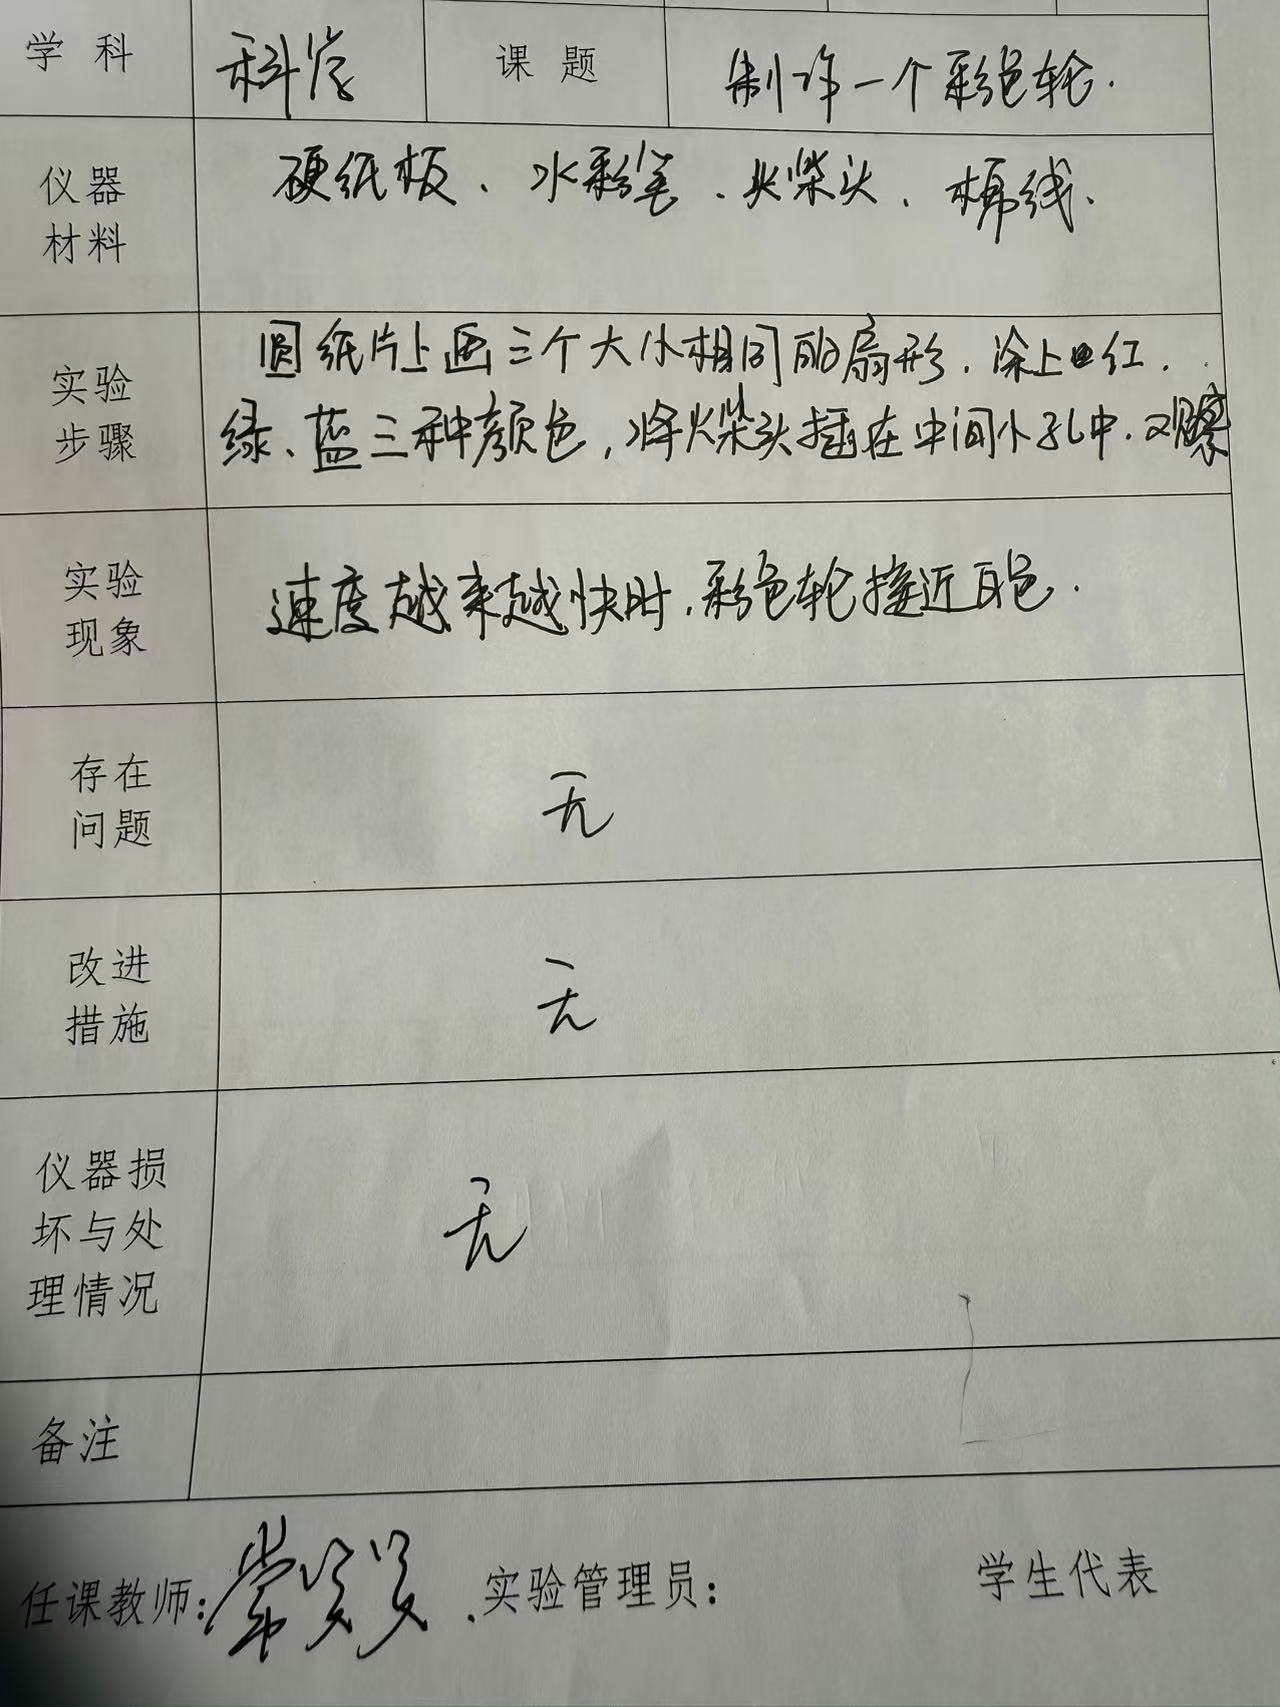 学 科 科学 课 题 制作一个彩色轮.
仪器
材料
硬纸板、水彩笔、火柴头、棉线.
实验
步骤
圆纸片上画三个大小相同的扇形.涂上红.
绿、蓝三种颜色,将火柴头插在中间小孔中.观察
实验
现象
速度越来越快时,彩色轮接近白色.
存在
问题
无
改进
措施
无
仪器损
坏与处
理情况
无
备注
任课教师: 实验管理员: 学生代表